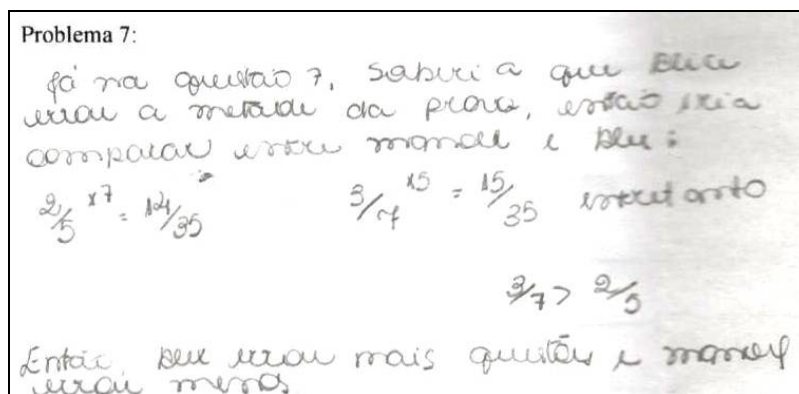 Problema 7:
Já na questão 7, saberia que
errou a metade da prova, então iria
comparar entre manoel e :
2/5 x7 = 14/35 3/7 x5 = 15/35 entretanto
3/7 > 2/5
Então, errou mais questões e manoel
errou menos